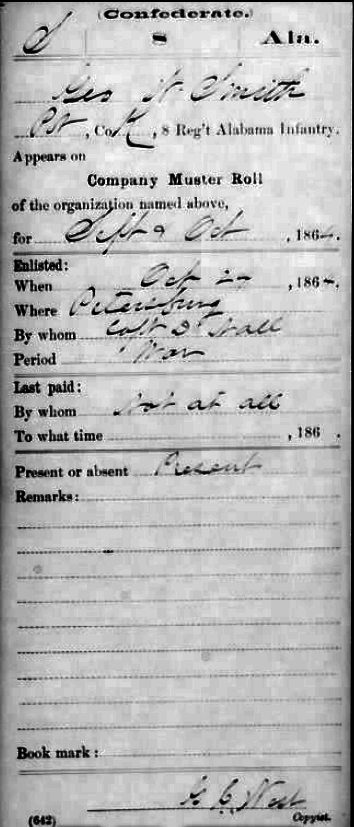 (Confederate.)
S 8 Ala.
Geo W Smith
Pvt, Co. K, 8 Reg't Alabama Infantry.
Appears on
Company Muster Roll
of the organization named above,
for Sept & Oct, 1864.
Enlisted:
When Oct 27, 1864.
Where Petersburg
By whom Capt D Hall
Period War
Last paid:
By whom Not at all
To what time, 186 .
Present or absent Present
Remarks:
Book mark:
G C West
(642) Copyist.